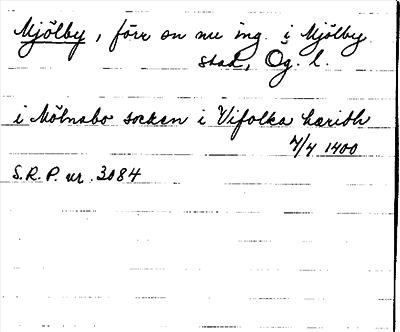 Mjölby, förr en nu ing. i Mjölby
stad, Ög. l.
i Mölnabo socken i Vifolka hæridh
7/4 1400
S.R.P. nr. 3084